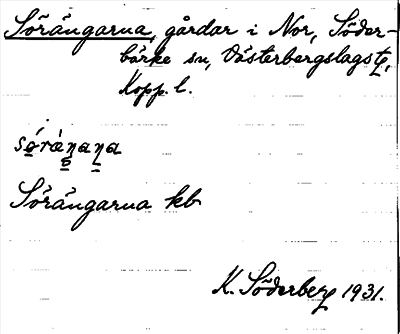 Sörängarna, gårdar i Nor, Söder-
bärke sn, Västerbergslags tg,
Kopp. l.
Sörängarna kb
K. Söderberg 1931.